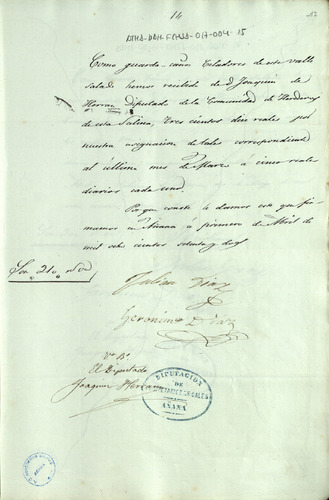 14
17
ATHA-DAH-FAHSA-017-004-15
Como guarda-caños Celadores de este valle
salado hemos recibido de D. Joaquin de
Herran Diputado de la Comunidad de Herederos
de esta Salina, tres cientos diez reales por
nuestra asignacion de tales correspondiente
al último mes de Marzo a cinco reales
diarios cada uno.
Para que conste le damos este que fir-
mamos en Añana á primero de Abril de
mil ocho cientos setenta y dos
Son 310 rs.
Julian Diaz
Geronimo Diaz
Vº Bº
El Diputado
Joaquin Herran
DIPUTACION
DE
SALES
AÑANA